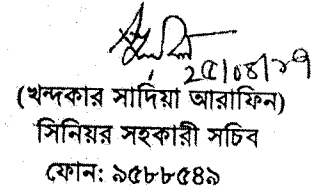 ২৫/০৪/২১
(খন্দকার সাদিয়া আরাফিন)
সিনিয়র সহকারী সচিব
ফোন: ৯৫৮৮৫৪৯